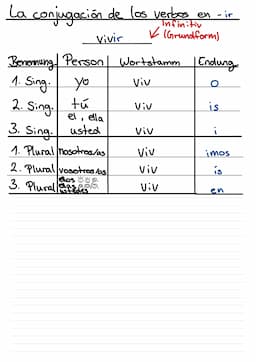 La conjugación de los verbos en -ir
Infinitiv
vivir (Grundform)
Benennung Person Wortstamm Endung
1. Sing. yo viv o
2. Sing. tú viv is
el, ella
3. Sing. usted viv i
1. Plural nosotros/as viv imos
2. Plural vosotros/as viv ís
ellos
3. Plural ellas viv en
ustedes